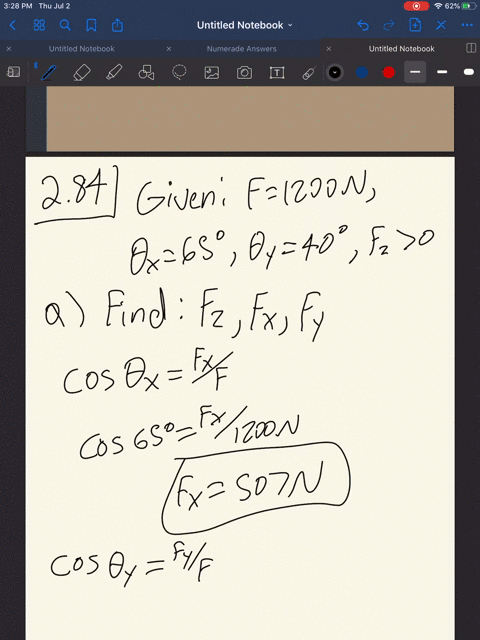 3:28 PM Thu Jul 2
62%
Untitled Notebook
Untitled Notebook
Numerade Answers
Untitled Notebook
2.84 Given: F=1200N,
θx=65°, θy=40°, Fz>0
a) Find: Fz, Fx, Fy
cos θx = Fx/F
cos 65° = Fx/1200N
Fx = 507N
cos θy = Fy/F